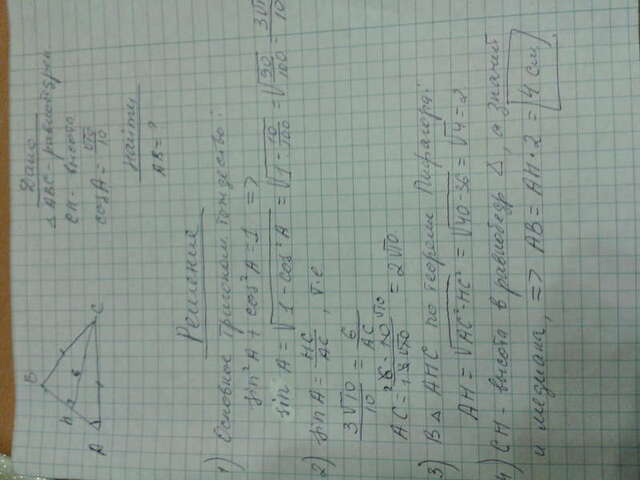 B
H
6
A
C
Дано
△ ABC - равнобедрен
CH - высота
cosA = √10/10
Найти
AB = ?
Решение
1) Основное тригоном. тождество:
sin²A + cos²A = 1 =>
sin A = √(1 - cos²A) = √(1 - 10/100) = √(90/100) = 3√10/10
2) sin A = HC/AC, т.е
3√10/10 = 6/AC
AC = 6·10/3√10 = 2√10
3) В △ AHC по теореме Пифагора:
AH = √(AC² - HC²) = √(40 - 36) = √4 = 2
4) CH - высота в равнобедр △, а значит
и медиана, => AB = AH · 2 = 4 см